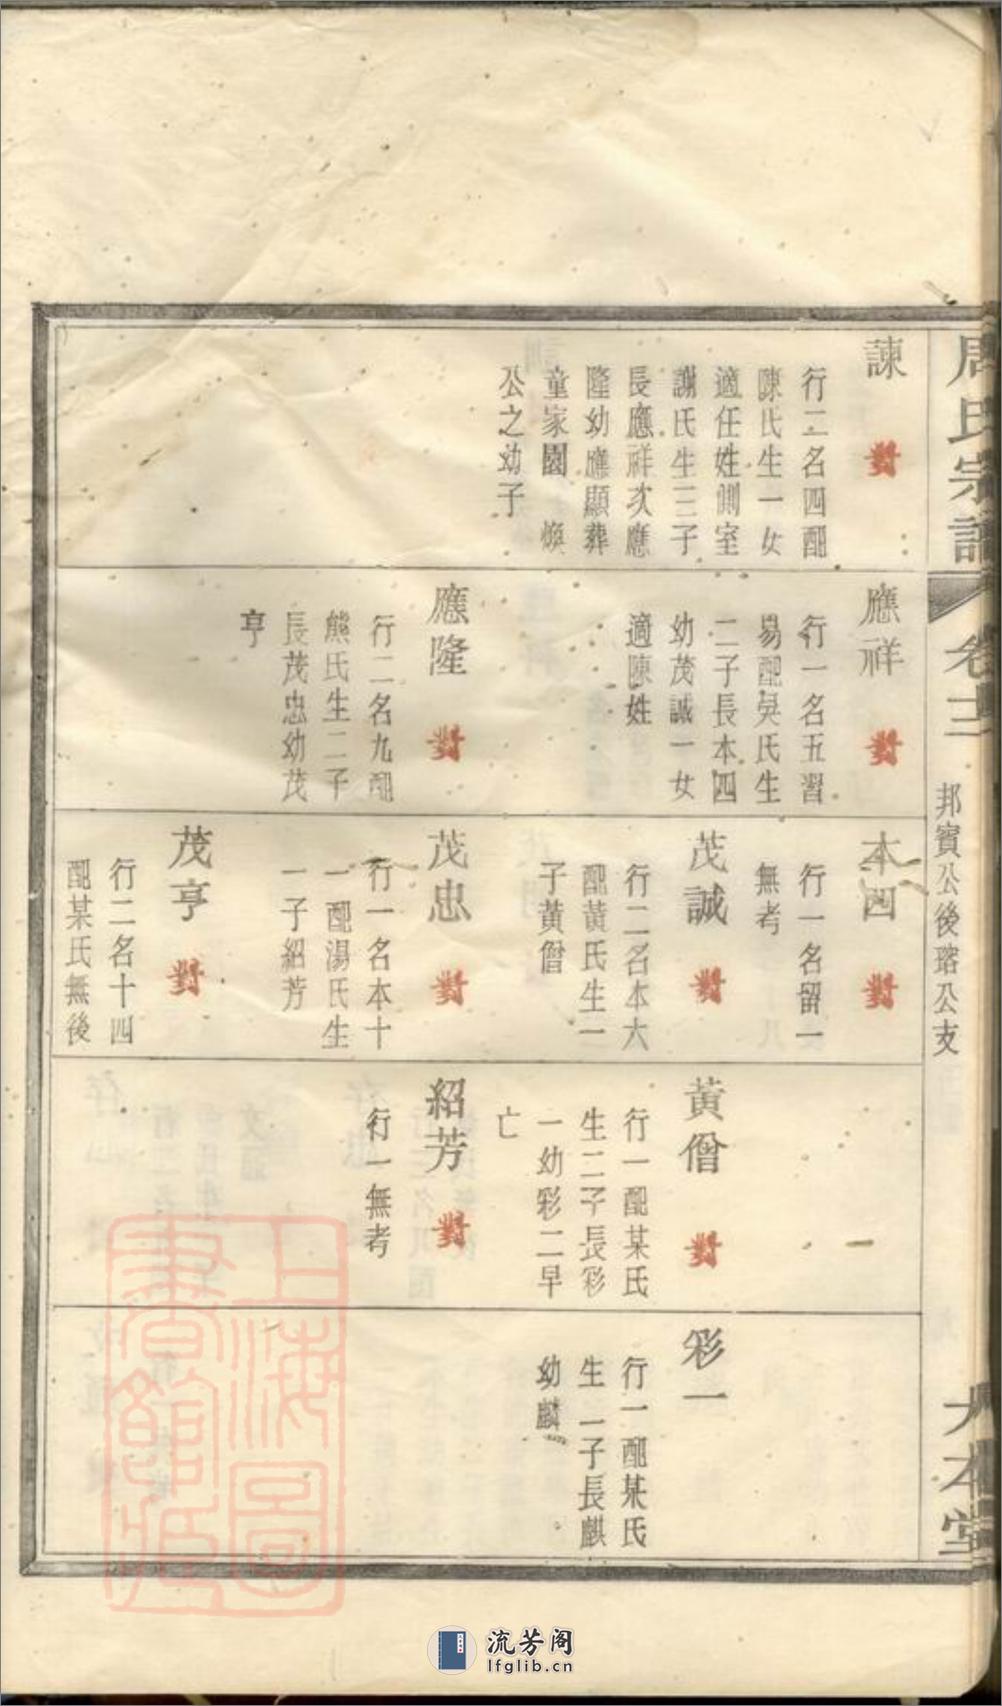 周氏宗譜
卷十二
邦賓公後瑢公支
大本堂
諫
對
行二名四配
陳氏生一女
適任姓側室
謝氏生三子
長應祥次應
隆幼應顯葬
童家園　煥
公之幼子
應祥
對
行一名五習
易配吳氏生
二子長本四
幼茂誠一女
適陳姓
應隆
對
行二名九配
熊氏生二子
長茂忠幼茂
亨
本四
對
行一名留一
無考
茂誠
對
行二名本六
配黃氏生一
子黃僧
茂忠
對
行一名本十
一配湯氏生
一子紹芳
茂亨
對
行二名十四
配某氏無後
黃僧
對
行一配某氏
生二子長彩
一幼彩二早
亡
紹芳
對
行一無考
彩一
行一配某氏
生二子長麒
幼麟
上海圖
書館藏
流芳阁
lfglib.cn